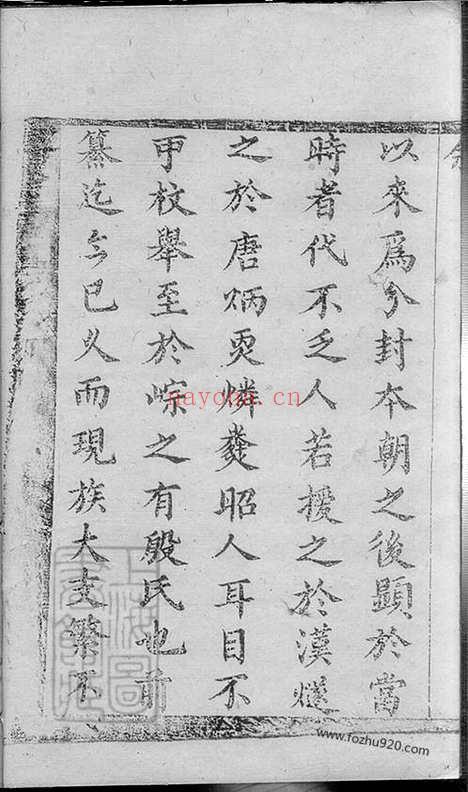 以來爲分封本朝之後顯於當
時者代不乏人若援之於漢燧
之於唐炳炙燐蠡昭人耳目不
甲枚舉至於崇之有殷氏也前
纂迄今已久而現族大支繁不
nayona.cn
www.fozhu920.com